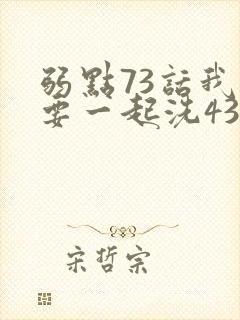 弱點73話我
要一起洗43
宋哲宗